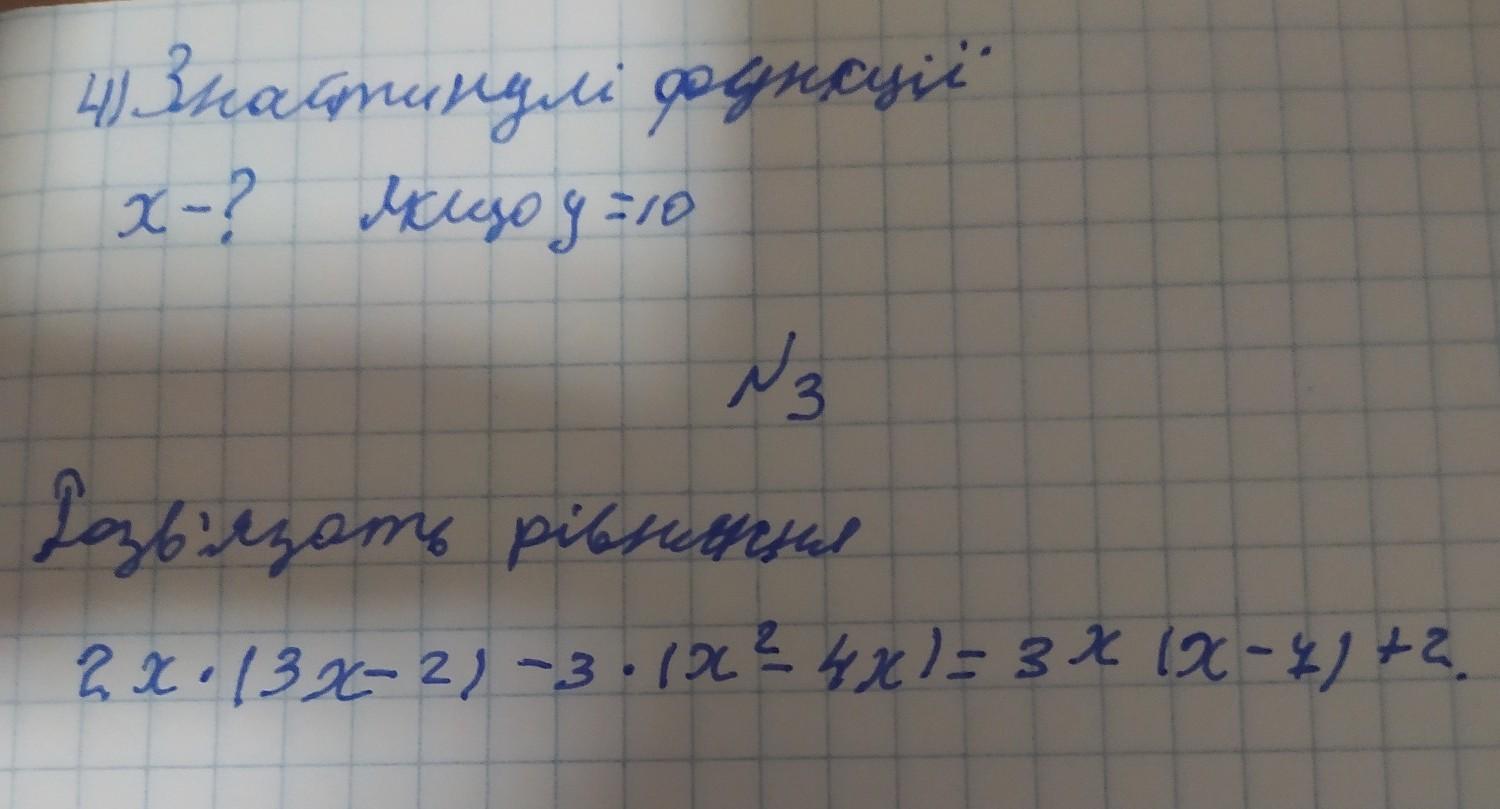 4) Знайти нулі функції
x - ? Якщо y = 10
N3
Розв'язать рівняння
2x · (3x - 2) - 3 · (x² - 4x) = 3x (x - 7) + 2.